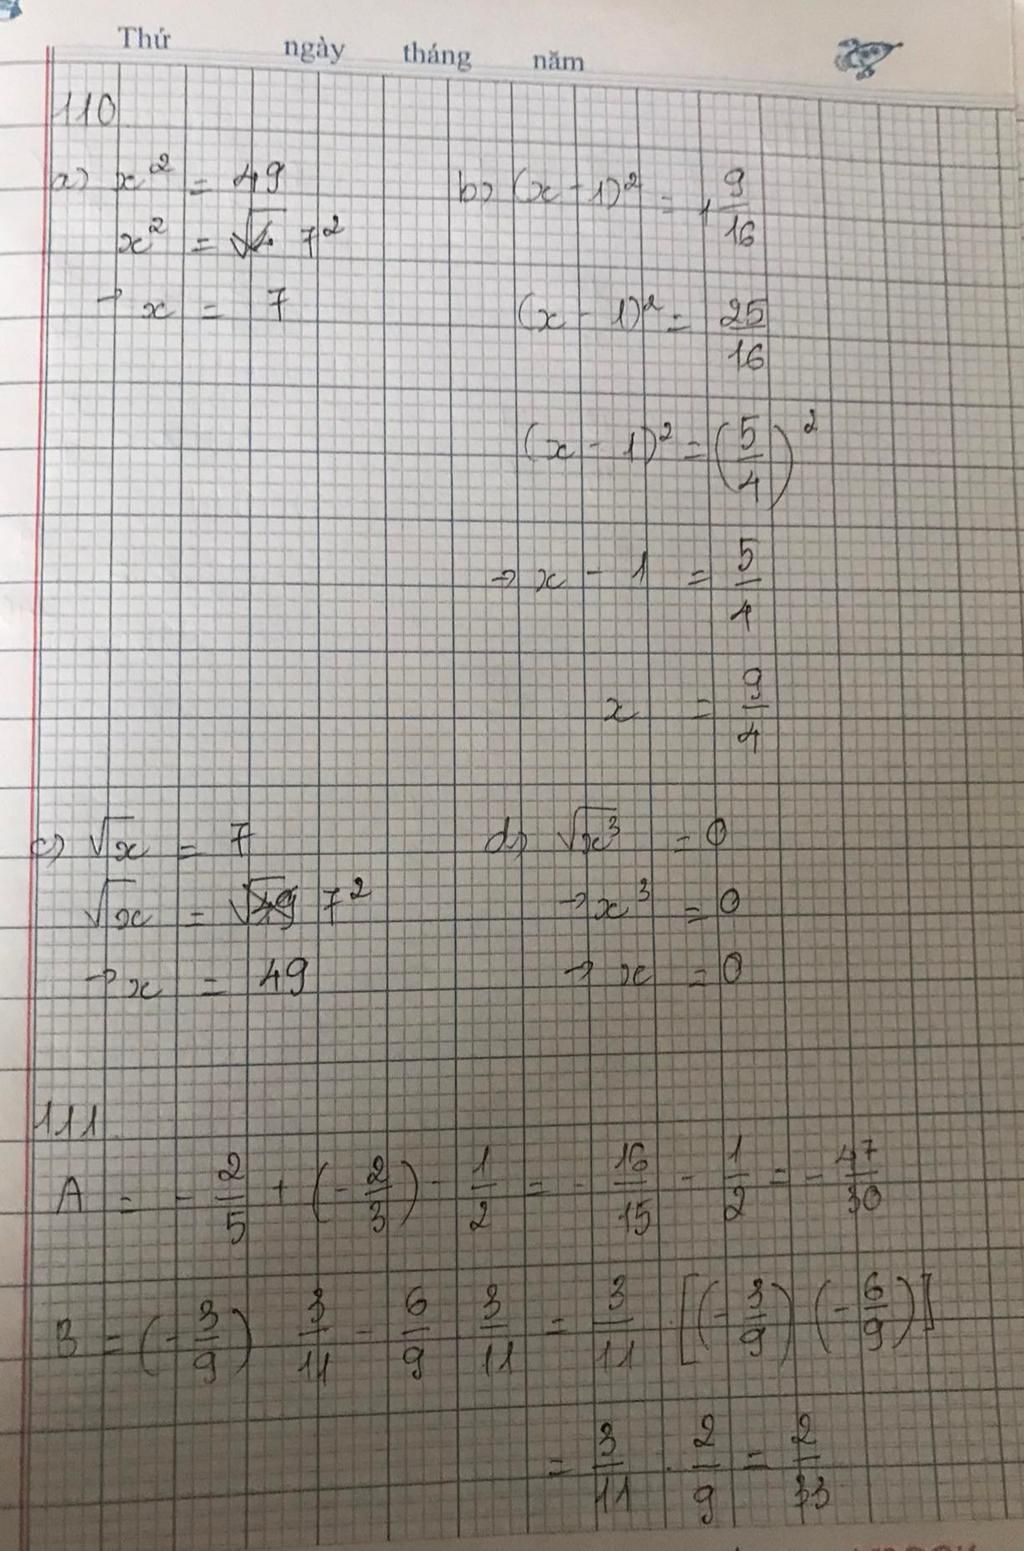 Thứ ngày tháng năm
110
a) x² = 49
x² = 7²
→ x = 7
b) (x - 1)² = 1 9/16
(x - 1)² = 25/16
(x - 1)² = (5/4)²
→ x - 1 = 5/4
x = 9/4
c) √x = 7
√x = 7²
→ x = 49
d) √x³ = 0
→ x³ = 0
→ x = 0
111
A = - 2/5 + (- 2/3) - 1/2 = - 16/15 - 1/2 = - 47/30
B = (- 3/9) 3/11 - 6/9 3/11 = 3/11 . [(- 3/9) (- 6/9)]
= 3/11 . 2/9 = 2/33